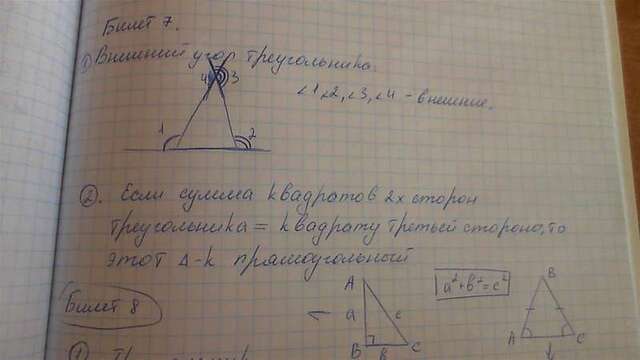 Билет 7.
① Внешний угол треугольника.
4 3
∠1 ∠2, ∠3, ∠4 - внешние.
1 2
②. Если сумма квадратов 2х сторон
треугольника = квадрату третьей стороно, то
этот Δ-к прямоугольный
Билет 8
A a²+b²=c² B
a c
B b C A C